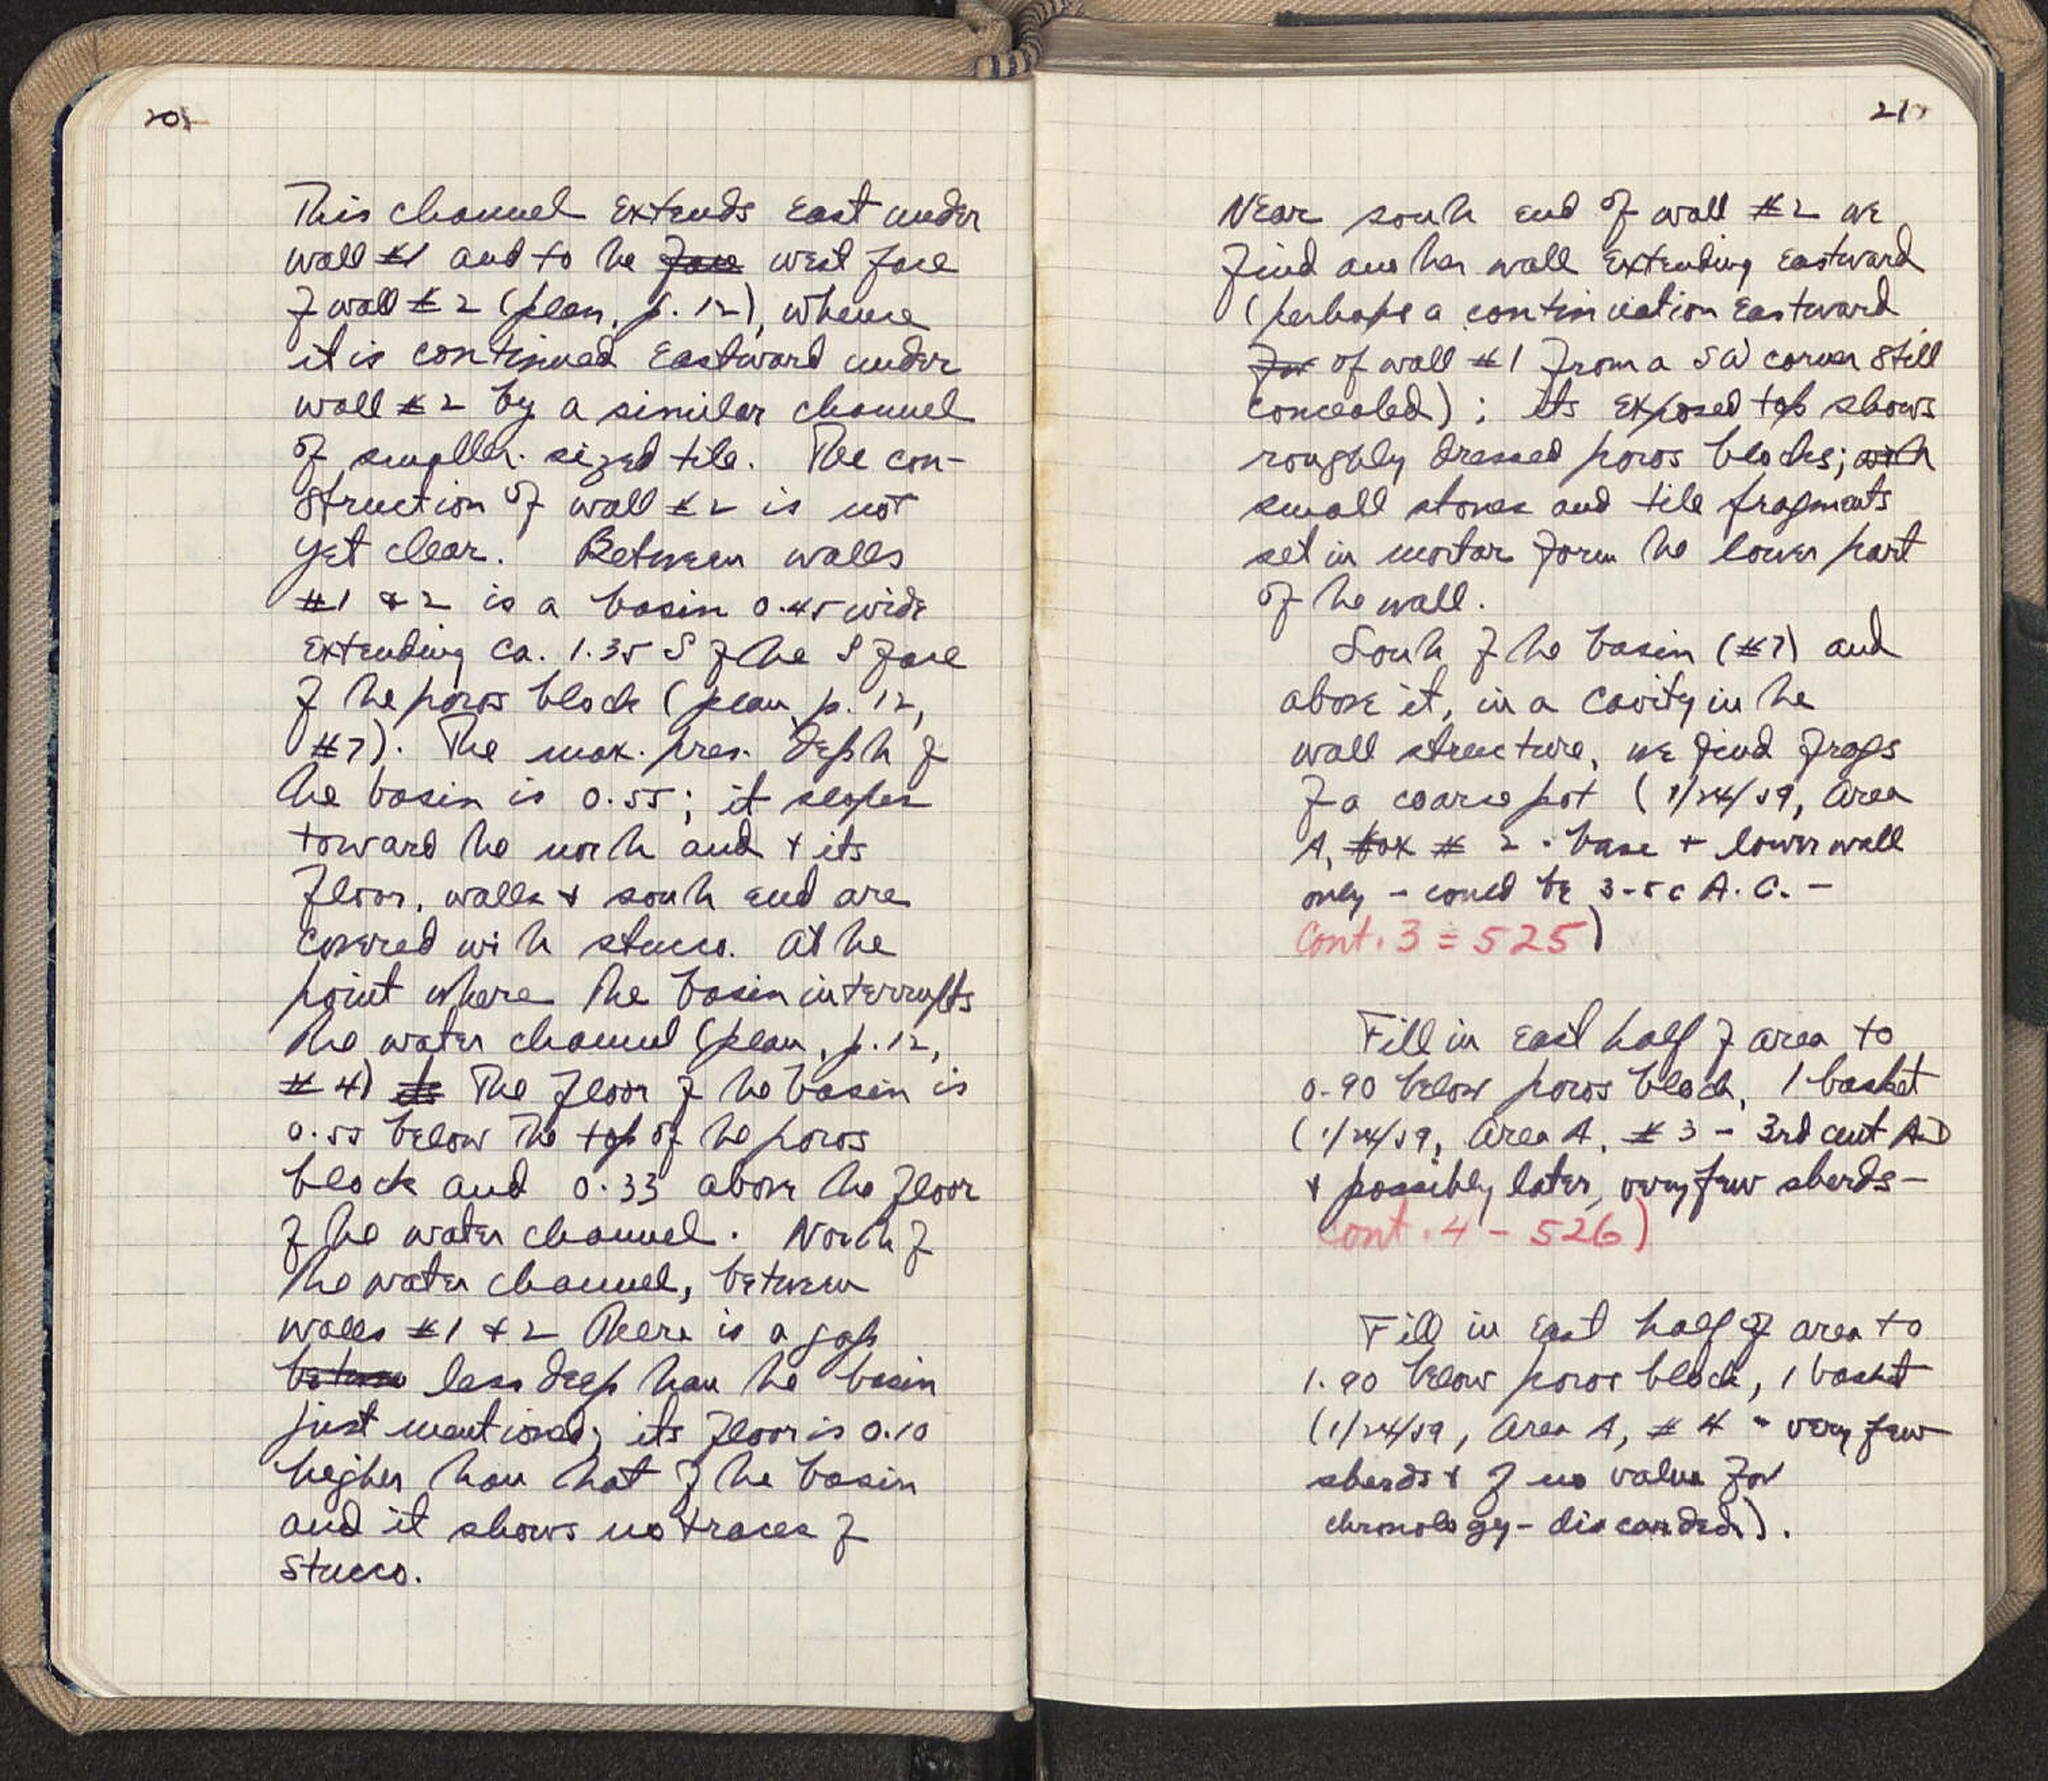 20
This channel extends east under
wall #1 and to the face west face
of wall #2 (plan, p. 12), whence
it is continued eastward under
wall #2 by a similar channel
of smaller-sized tile. The con-
struction of wall #2 is not
yet clear. Between walls
#1 + 2 is a basin 0.45 wide
extending ca. 1.35 S of the S face
of the poros block (plan, p. 12,
#7). The max. pres. depth of
the basin is 0.55; it slopes
toward the north and + its
floor, walls + south end are
covered with stucco. At the
point where the basin interrupts
the water channel (plan, p. 12,
#4) its The floor of the basin is
0.55 below the top of the poros
block and 0.33 above the floor
of the water channel. North of
the water channel, between
walls #1 + 2 there is a gap
between less deep than the basin
just mentioned; its floor is 0.10
higher than that of the basin
and it shows no traces of
stucco.
21
Near south end of wall #2 we
find another wall extending eastward
(perhaps a continuation eastward
for of wall #1 from a SW corner still
concealed); its exposed top shows
roughly dressed poros blocks; with
small stones and tile fragments
set in mortar form the lower part
of the wall.
South of the basin (#7) and
above it, in a cavity in the
wall structure, we find frags
of a coarse pot (1/24/59, Area
A, box # 2 - base + lower wall
only - could be 3-5c A.C. -
Cont. 3 = 525)
Fill in east half of area to
0.90 below poros block, 1 basket
(1/24/59, Area A, #3 - 3rd cent AD
+ possibly later, very few sherds -
Cont. 4 - 526)
Fill in east half of area to
1.90 below poros block, 1 basket
(1/24/59, Area A, #4 - very few
sherds + of no value for
chronology - discarded).